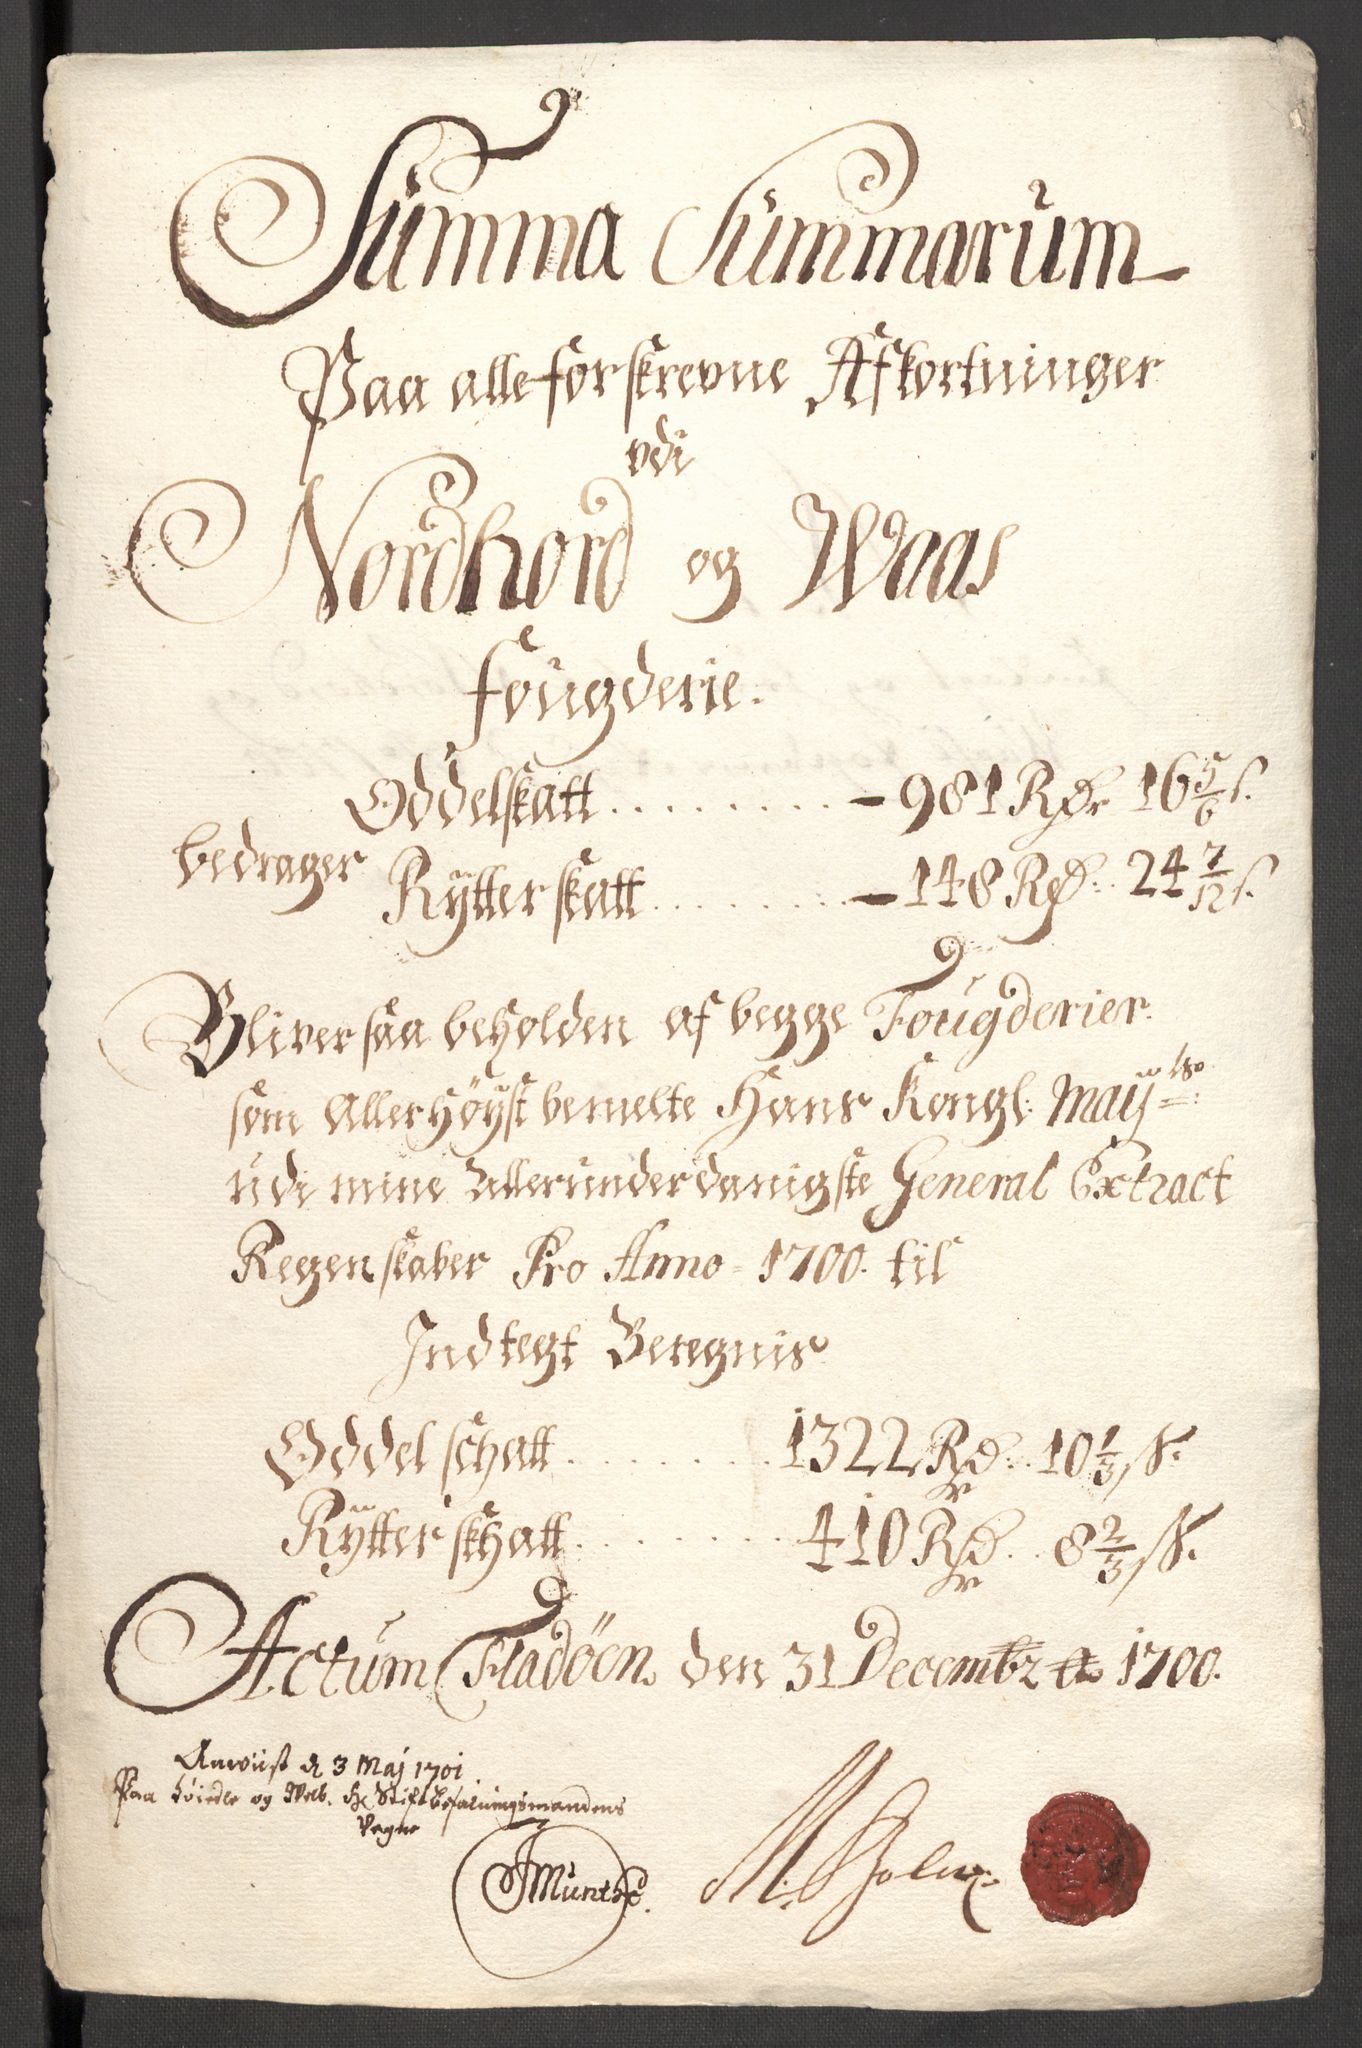 Summa Summarum
Paa alle forskrevne Afkortninger
vdi
Nordhord og Waas
fougderie.
Oddelskatt ........ - 981 Rdr 16 5/6 s.
bedrager
Rÿtterskatt ........ - 148 Rd: 24 7/12 s.
Bliver saa beholden af begge Fougderier
som Allerhöyst bemelte Hans Kongl: Maÿ:
udi mine Allerunderdanigste General Extract
Regenskaber Pro Anno 1700. til
Indtegt Beregnis
Oddel schatt ........ 1322 Rdr. 10 1/3 s.
Rÿtter skhatt ........ 410 Rdr. 8 2/3 s.
Actum Fladöen den 31 Decembr a 1700.
Anviist d 3 Maj 1701
Paa höiedle og Welb. Hr Stiftbefalingsmandens
Vegne
Munthe.